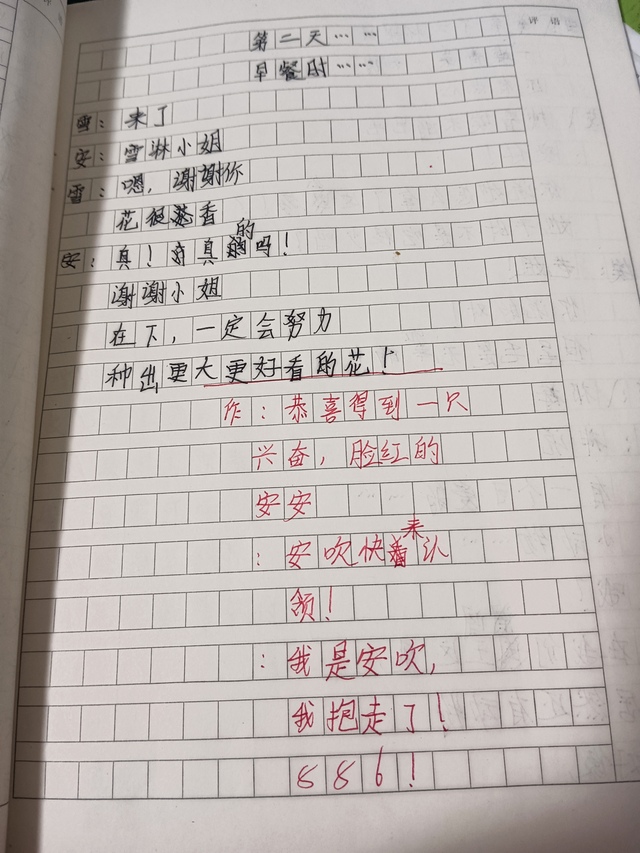 评语
第二天……
早餐时……
雪：来了
安：雪淋小姐
雪：嗯，谢谢你
花很香
安：真！真的吗！
谢谢小姐
在下，一定会努力
种出更大更好看的花！
作：恭喜得到一只
兴奋，脸红的
安安
：安吹快来认
领！
：我是安吹，
我抱走了！
886！